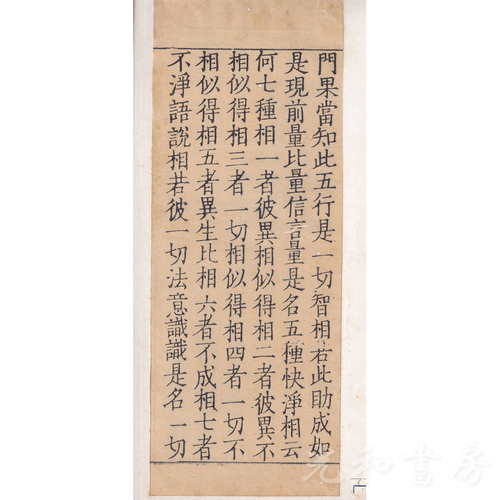 門果當知此五行是一切智相若此助成如
是現前量比量信言量是名五種快淨相云
何七種相一者彼異相似得相二者彼異不
相似得相三者一切相似得相四者一切不
相似得相五者異生比相六者不成相七者
不淨語說相若彼一切法意識識是名一切
元和書房